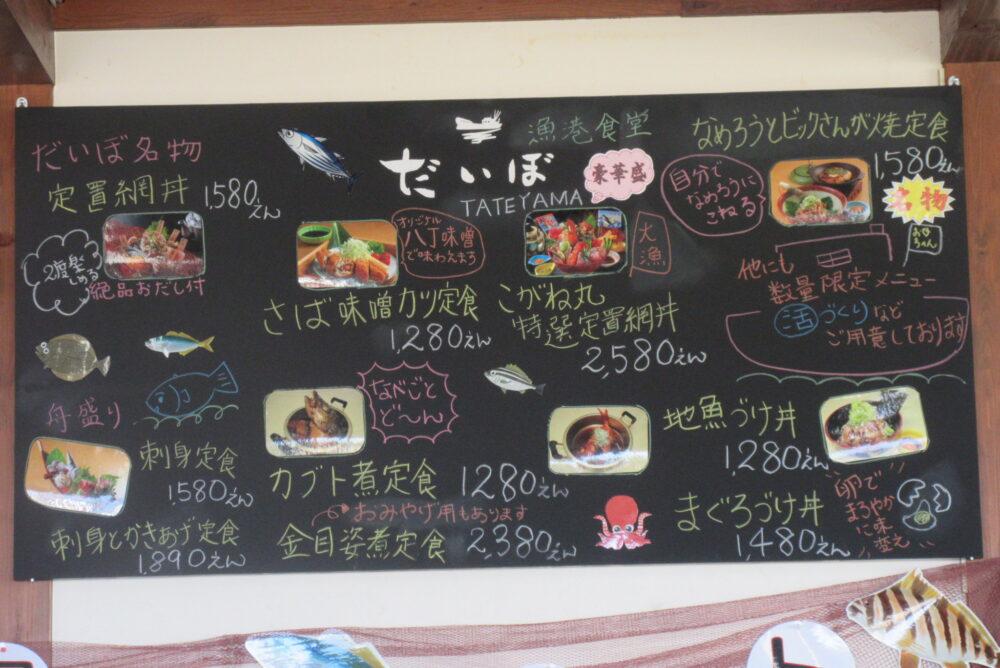 漁港食堂
だいぼ
TATEYAMA
だいぼ名物
定置網丼 1,580えん
2度楽しめる
絶品おだし付
オリジナル
八丁味噌
で味わえます
さば味噌カツ定食
1,280えん
豪華盛
大漁
こがね丸
特選定置網丼
2,580えん
なめろうとビックさんが焼定食
1,580えん
自分で
なめろうに
こねる
名物
おかちゃん
他にも
数量限定メニュー
活づくりなど
ご用意しております
舟盛り
刺身定食
1580えん
刺身とかきあげ定食
1,890えん
なべごと
ど〜ん
カブト煮定食 1280えん
おみやげ用もあります
金目姿煮定食 2,380えん
地魚づけ丼
1,280えん
まぐろづけ丼
1,480えん
卵で
まろやか
に味
変え